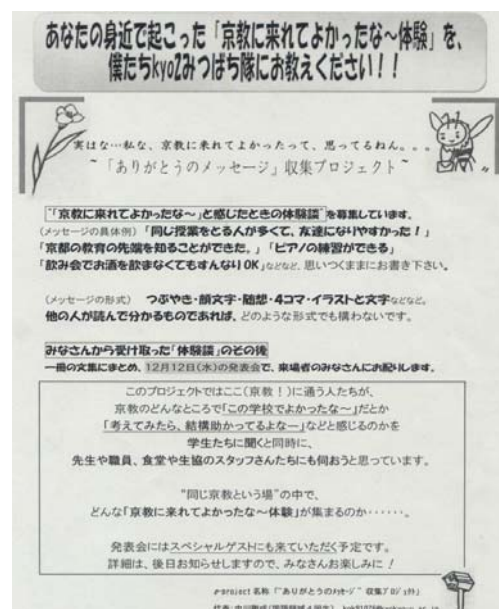 あなたの身近で起こった「京教に来れてよかったな～体験」を、
僕たちkyo2みつばち隊にお教えください！！
実はな…私な、京教に来れてよかったって、思ってるねん。。。
~「ありがとうのメッセージ」収集プロジェクト~
「京教に来れてよかったな～」と感じたときの体験談を募集しています。
(メッセージの具体例) 「同じ授業をとる人が多くて、友達になりやすかった！」
「京都の教育の先端を知ることができた。」「ピアノの練習ができる」
「飲み会でお酒を飲まなくてもすんなりOK」などなど、思いつくままにお書き下さい。
(メッセージの形式) つぶやき・顔文字・随想・4コマ・イラストと文字などなど。
他の人が読んで分かるものであれば、どのような形式でも構わないです。
みなさんから受け取った「体験談」のその後
一冊の文集にまとめ、12月12日(水)の発表会で、来場者のみなさんにお配りします。
このプロジェクトではここ(京教！)に通う人たちが、
京教のどんなところで「この学校でよかったな～」だとか
「考えてみたら、結構助かってるよなー」などと感じるのかを
学生たちに聞くと同時に、
先生や職員、食堂や生協のスタッフさんたちにも伺おうと思っています。
“同じ京教という場”の中で、
どんな「京教に来れてよかったな～体験」が集まるのか・・・・・・。
発表会にはスペシャルゲストにも来ていただく予定です。
詳細は、後日お知らせしますので、みなさんお楽しみに！
e-project 名称「“ありがとうのメッセージ”収集プロジェクト」